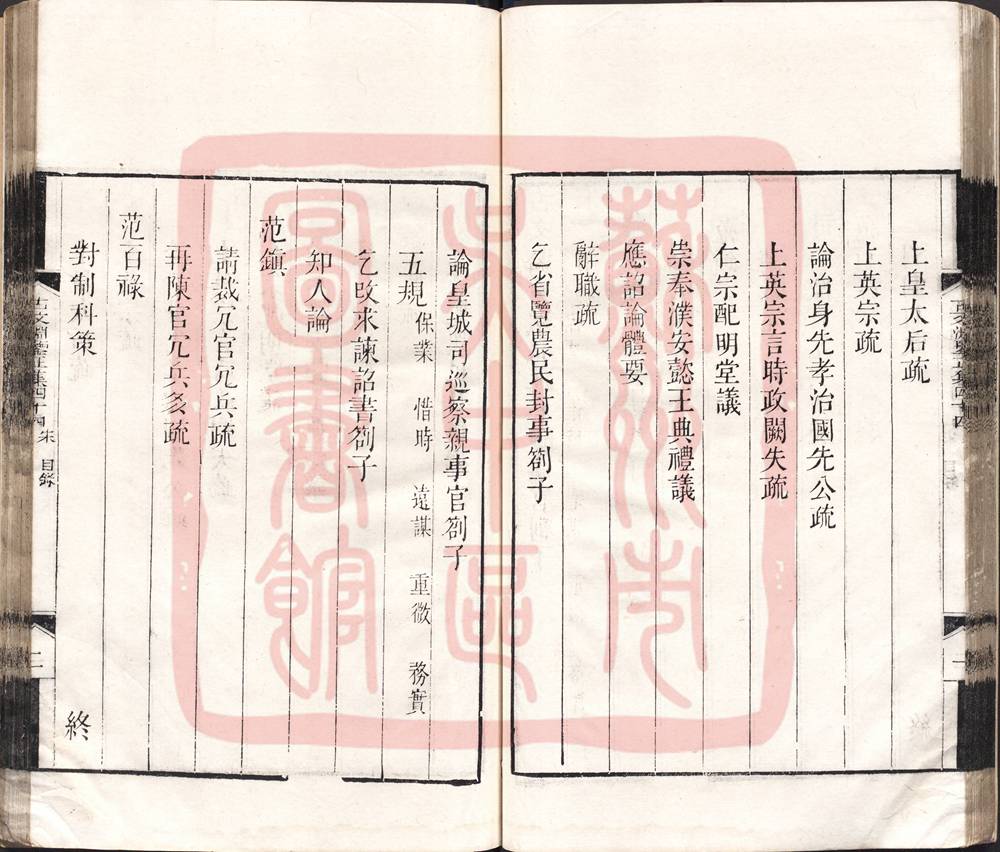 上皇太后疏
上英宗疏
論治身先孝治國先公疏
上英宗言時政闕失疏
仁宗配明堂議
崇奉濮安懿王典禮議
應詔論體要
辭職疏
乞省覽農民封事劄子
論皇城司巡察親事官劄子
五規 保業 惜時 遠謀 重微 務實
乞改求諫詔書劄子
知人論
范鎮
請裁冗官冗兵疏
再陳官冗兵多疏
范百祿
對制科策
終
目錄
二
一
蘇州市
吳中區
圖書館